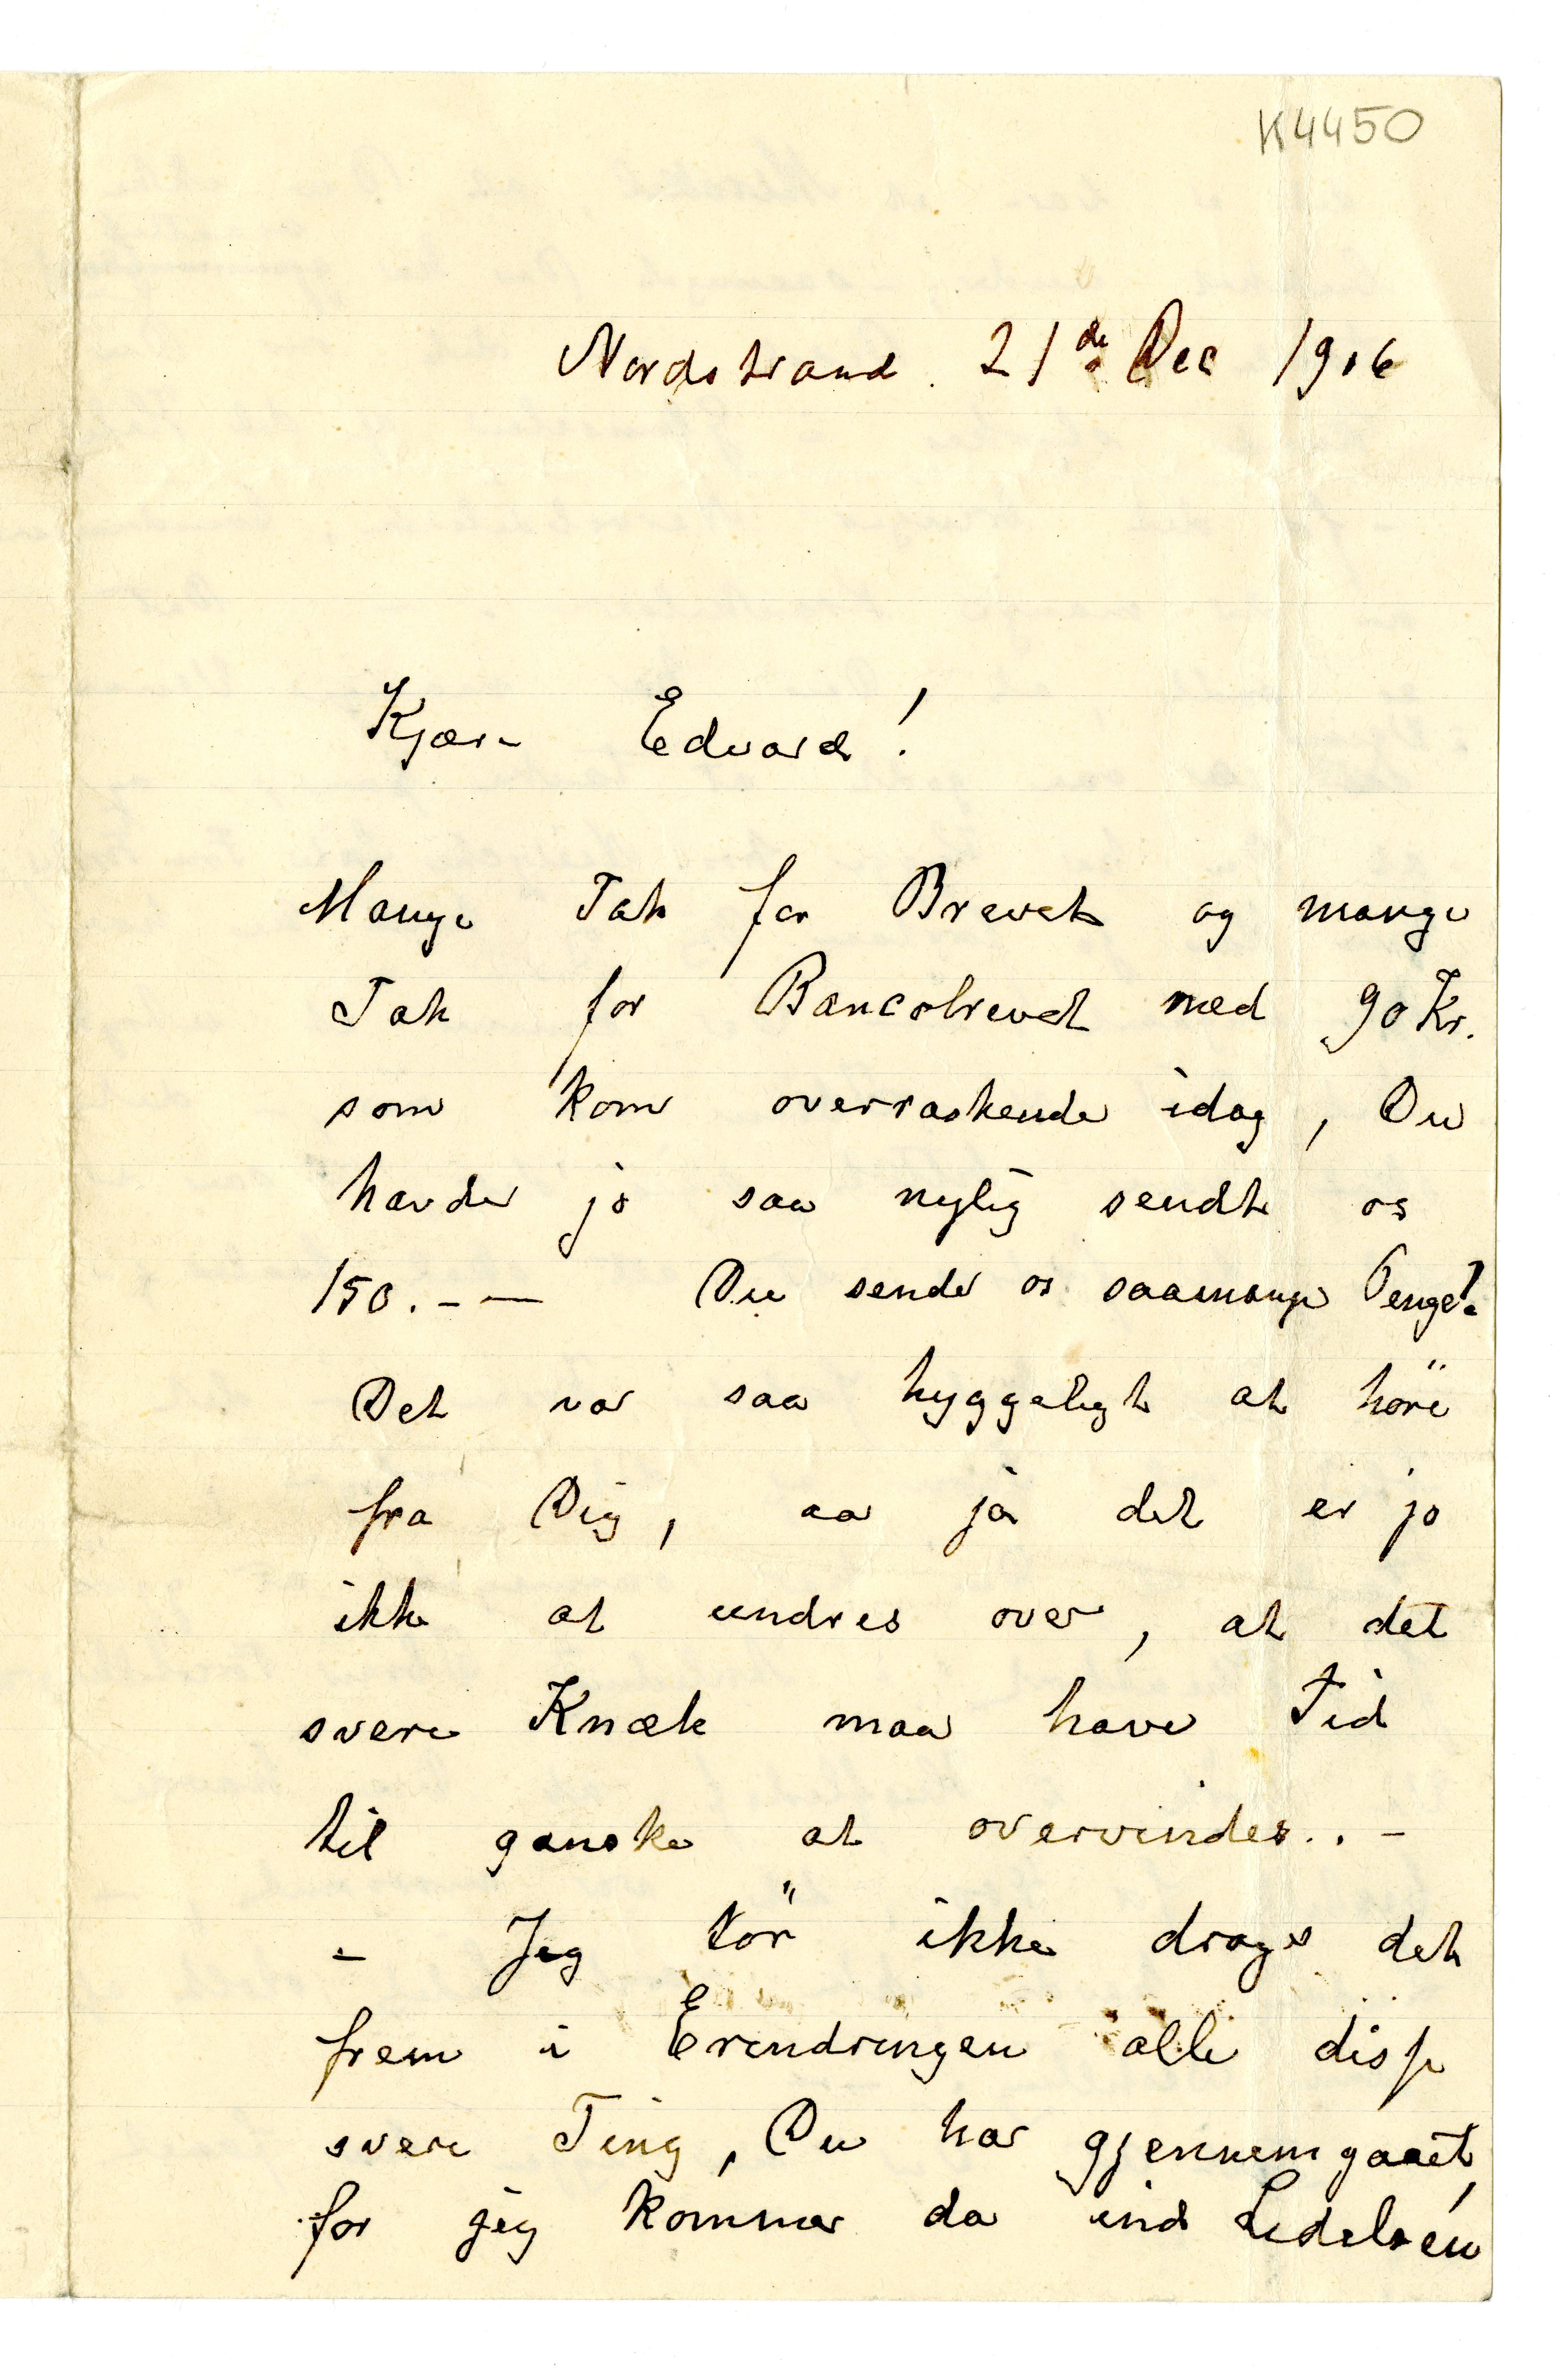 K4450
Nordstrand. 21de Dec 1906
Kjære Edvard!
Mange Tak for Brevet og mange
Tak for Bancobrevet med 90 Kr.
som kom overraskende idag, Du
havde jo saa nylig sendt os
150.-— Du sender os saamange Penge!
Det var saa hyggeligt at höre
fra Dig, aa ja det er jo
ikke at undres over, at det
svere Knæk maa have Tid
til ganske at overvindes..-
- Jeg tör ikke drage det
frem i Erindringen alle disse
svere Ting, Du har gjennemgaaet,
for jeg kommer da ind Lidelsen